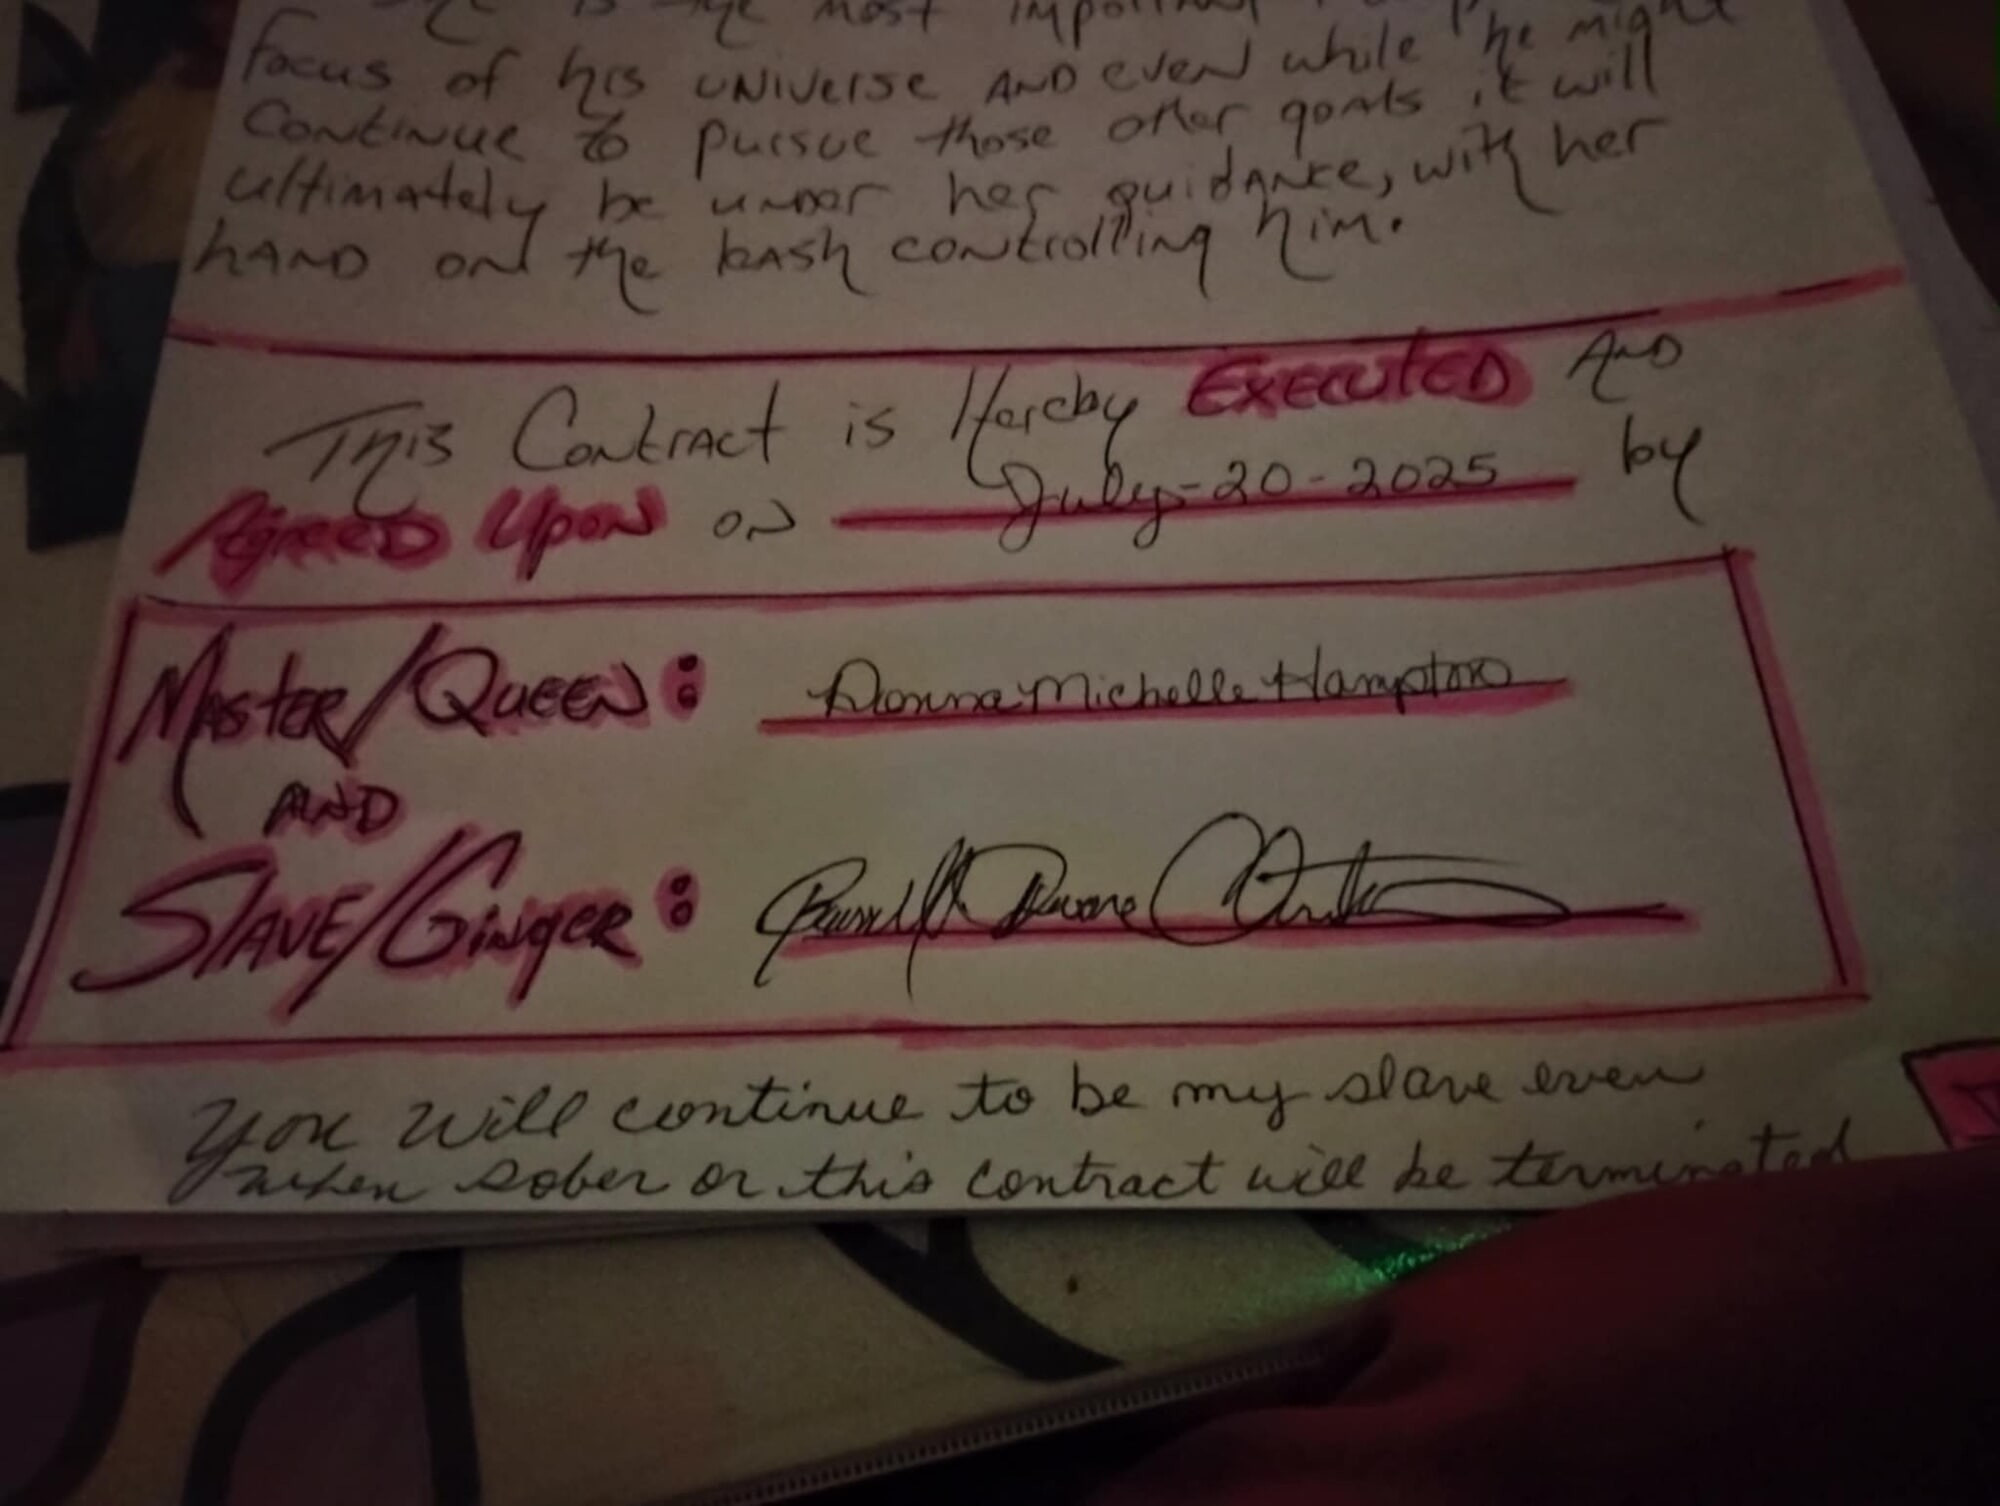 is the most important
focus of his universe and even while he might
continue to pursue those other goals it will
ultimately be under her guidance, with her
hand on the leash controlling him.
This Contract is Hereby Executed And
Agreed Upon on July-20-2025 by
Master/Queen: Donna Michelle Hampton
And
Slave/Ginger: Duane
You will continue to be my slave even
when sober or this contract will be terminated